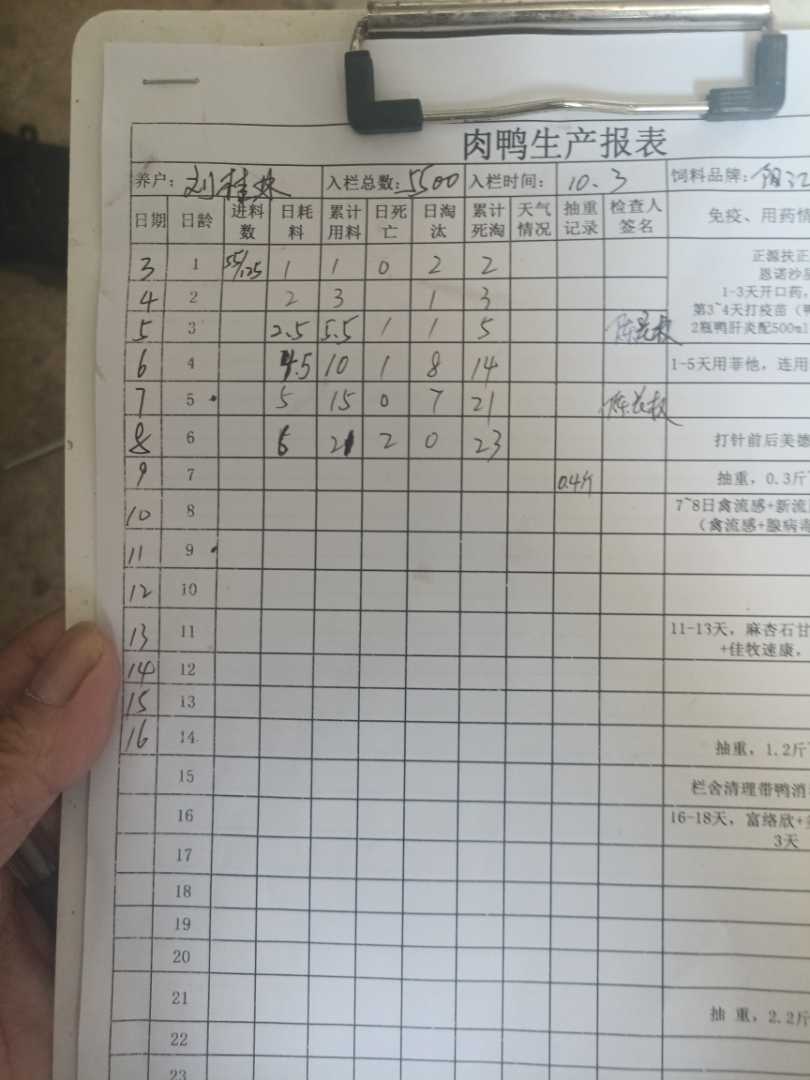 肉鸭生产报表
养户: 刘桂林 入栏总数: 5500 入栏时间: 10.3 饲料品牌:
日期 日龄 进料数 日耗料 累计用料 日死亡 日淘汰 累计死淘 天气情况 抽重记录 检查人签名 免疫、用药情
3 1 55/125 1 1 0 2 2 正源扶正
恩诺沙星
1-3天开口药,
4 2 2 3 1 3 第3~4天打疫苗（鸭
5 3 2.5 5.5 1 1 5 2瓶鸭肝炎配500ml
6 4 4.5 10 1 8 14 1-5天用菲他，连用
7 5 5 15 0 7 21
8 6 6 21 2 0 23 打针前后美德
9 7 0.4斤 抽重，0.3斤
10 8 7~8日禽流感+新流
（禽流感+腺病毒
11 9
12 10
13 11 11-13天，麻杏石甘
+佳牧速康，
14 12
15 13
16 14 抽重，1.2斤
15 栏舍清理带鸭消
16 16-18天，富络欣+
3天
17
18
19
20
21 抽重，2.2斤
22
23